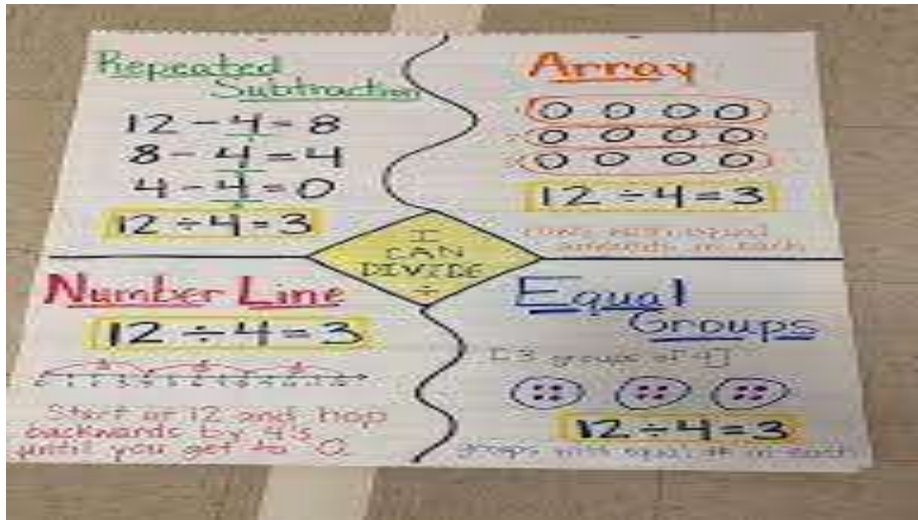 Repeated
Subtraction
12 - 4 = 8
8 - 4 = 4
4 - 4 = 0
12 ÷ 4 = 3
Array
12 ÷ 4 = 3
equal
amounts in each
I
CAN
DIVIDE
÷
Number Line
12 ÷ 4 = 3
Start at 12 and hop
backwards by 4's
until you get to 0
Equal
Groups
[3 groups of 4]
12 ÷ 4 = 3
groups with equal # in each